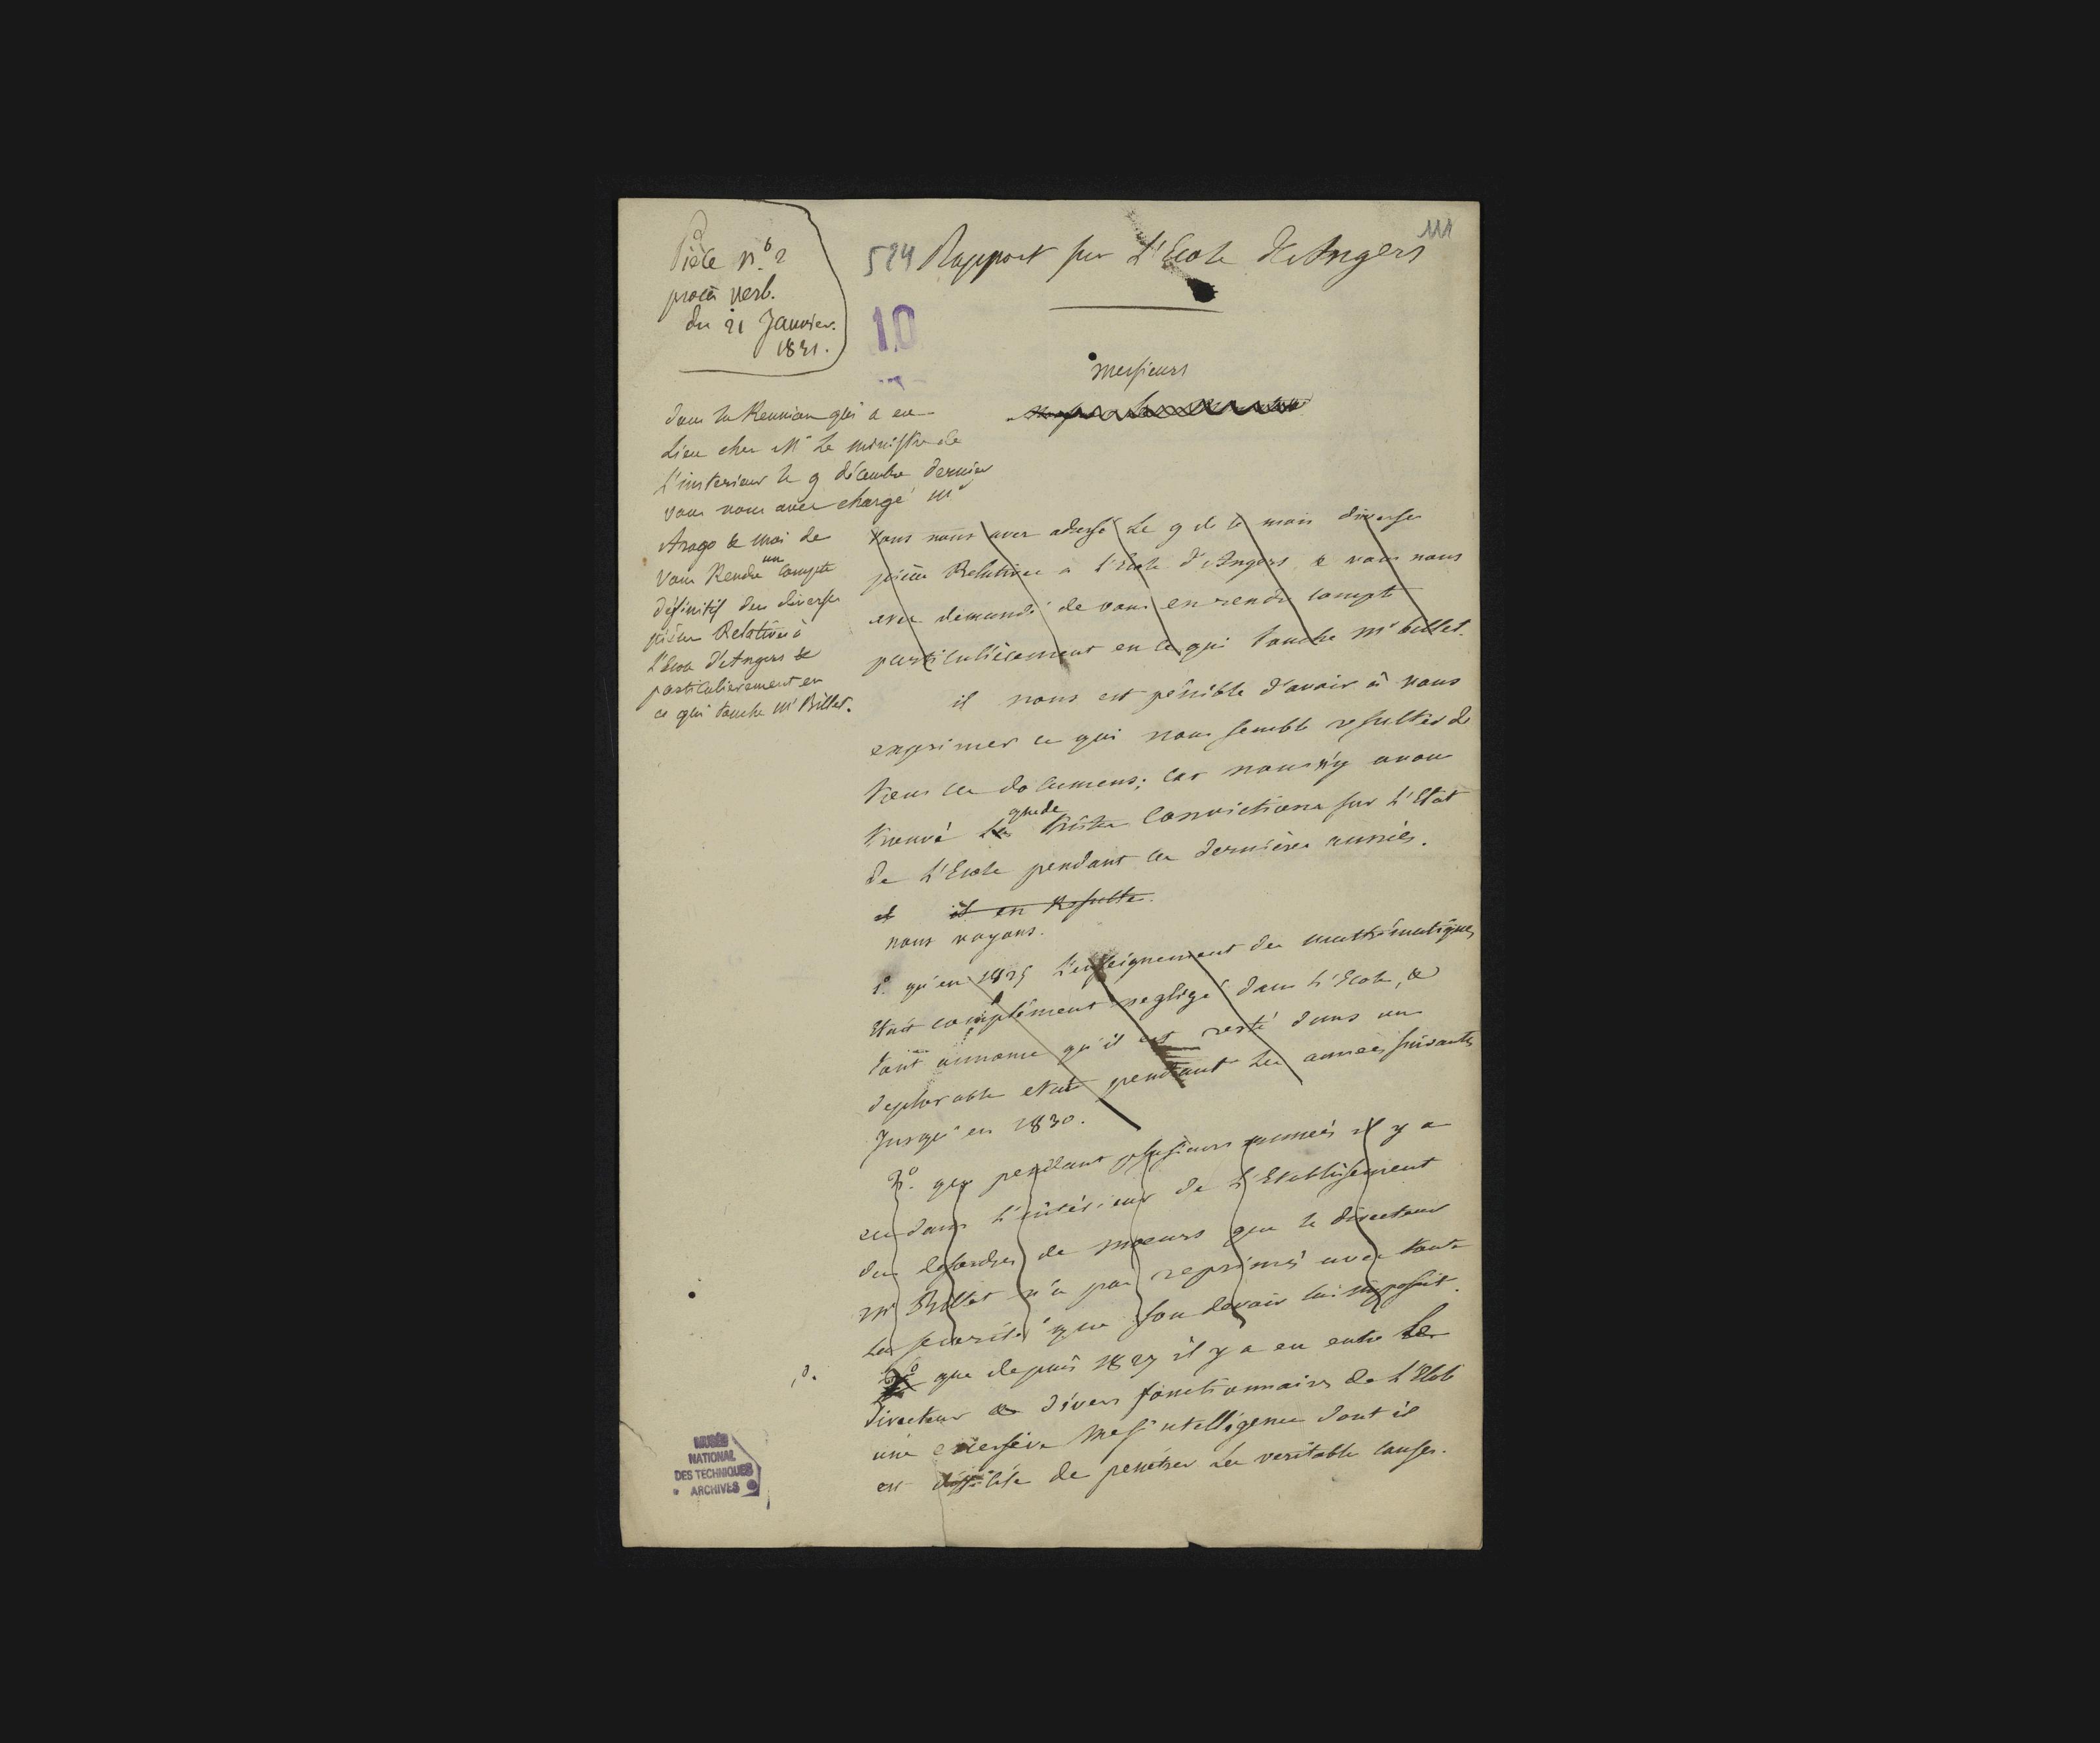 Pièce n.° 2
procès verb.
du 21 Janvier.
1831.
524 Rapport sur L'Ecole d'Angers
111
10
messieurs
dans la Reunion qui a eu
Lieu chez Mr Le ministre de
L'interieur le 9 décembre dernier
vous nous avez chargé Mr
Arago & moi de
vous Rendre un compte
définitif des diverses
pièces Relatives à
L'Ecole d'Angers &
particulierement en
ce qui touche Mr Billet.
vous nous avez adressé Le 9 de ce mois diverses
pièces Relatives a L'Ecole d'Angers & vous nous
avez demandé de vous en rendre compte
particulièrement en ce qui touche Mr billet.
il nous est pénible d'avoir à vous
exprimer ce qui nous semble resulter de
tous ces documens; car nous n'y avons
trouvé que de tristes convictions sur L'Etat
de L'Ecole pendant ces dernières années.
et il en Resulte.
nous voyons.
1.° qu'en 1825 L'enseignement des mathématiques
etait complétement negligé dans L'Ecole, &
tout annonce qu'il est resté dans un
deplorable etat pendant les années suivantes
Jusqu'en 1830.
2.° que pendant plusieurs années il y a
eu dans L'intérieur de L'Etablissement
des desordres de moeurs que le directeur
Mr Billet n'a pas reprimés avec toute
La severité que son devoir lui imposait.
1.°
que depuis 1827 il y a eu entre Le
directeur & divers fonctionnaires de L'Etab
une excessive mesintelligence dont il
est difficile de penétrer les veritables causes.
MUSÉE
NATIONAL
DES TECHNIQUES
ARCHIVES